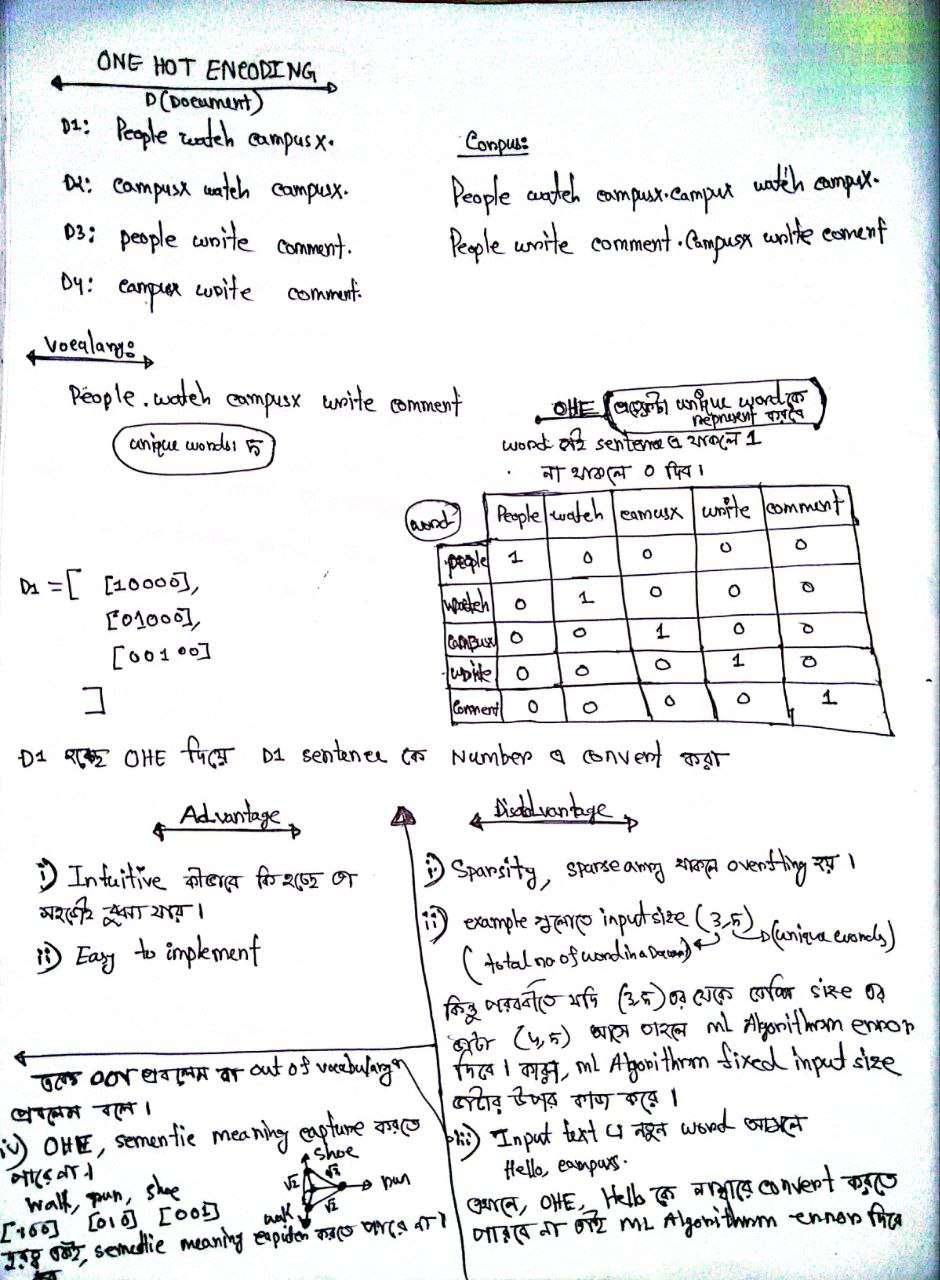 ONE HOT ENCODING
D (Document)
D1: People watch campusx.
D2: campusx watch campusx.
D3: people write comment.
D4: campusx write comment.
Corpus:
People watch campusx. campux watch campux.
People write comment. Campusx write coment
Vocalary:
People. watch campusx write comment
unique words 5
OHE প্রত্যেকটা unique word কে
represent করবে
word টাই sentence এ থাকলে 1
না থাকলে 0 দিব।
word
People watch camusx write comment
people 1 0 0 0 0
watch 0 1 0 0 0
campux 0 0 1 0 0
write 0 0 0 1 0
comment 0 0 0 0 1
D1 = [ [10000],
[01000],
[00100]
]
D1 হচ্ছে OHE দিয়ে D1 sentence কে Number এ convert করা
Advantage
i) Intuitive কীভাবে কি হচ্ছে তা
সহজেই বুঝা যায়।
ii) Easy to implement
Disadvantage
i) Sparsity, sparse array থাকলে overfting হয়।
ii) example গুলোতে input size (3,5) → (unique words)
(total no of word in a Docum)
কিন্তু পরবর্তীতে যদি (3,5) এর থেকে বেশি size এর
ডাটা (4,5) আসে তাহলে ML Algorithm error
দিবে। কারন, ml Algorithm fixed input size
ডাটার উপর কাজ করে।
iii) Input text এ নতুন word আসলে
Hello, campuxs.
এখানে, OHE, Hello কে নাম্বারে convert করতে
পারবে না তাই ML Algorithm error দিবে
একে OOV প্রবলেম বা out of vocabulary
প্রবলেম বলে।
iv) OHE, sementic meaning capture করতে
পারে না।
walk, run, shoe
[100] [010] [001]
shoe
√2 √2
run
walk √2
দূরত্ব একই, semetic meaning capture করতে পারে না।